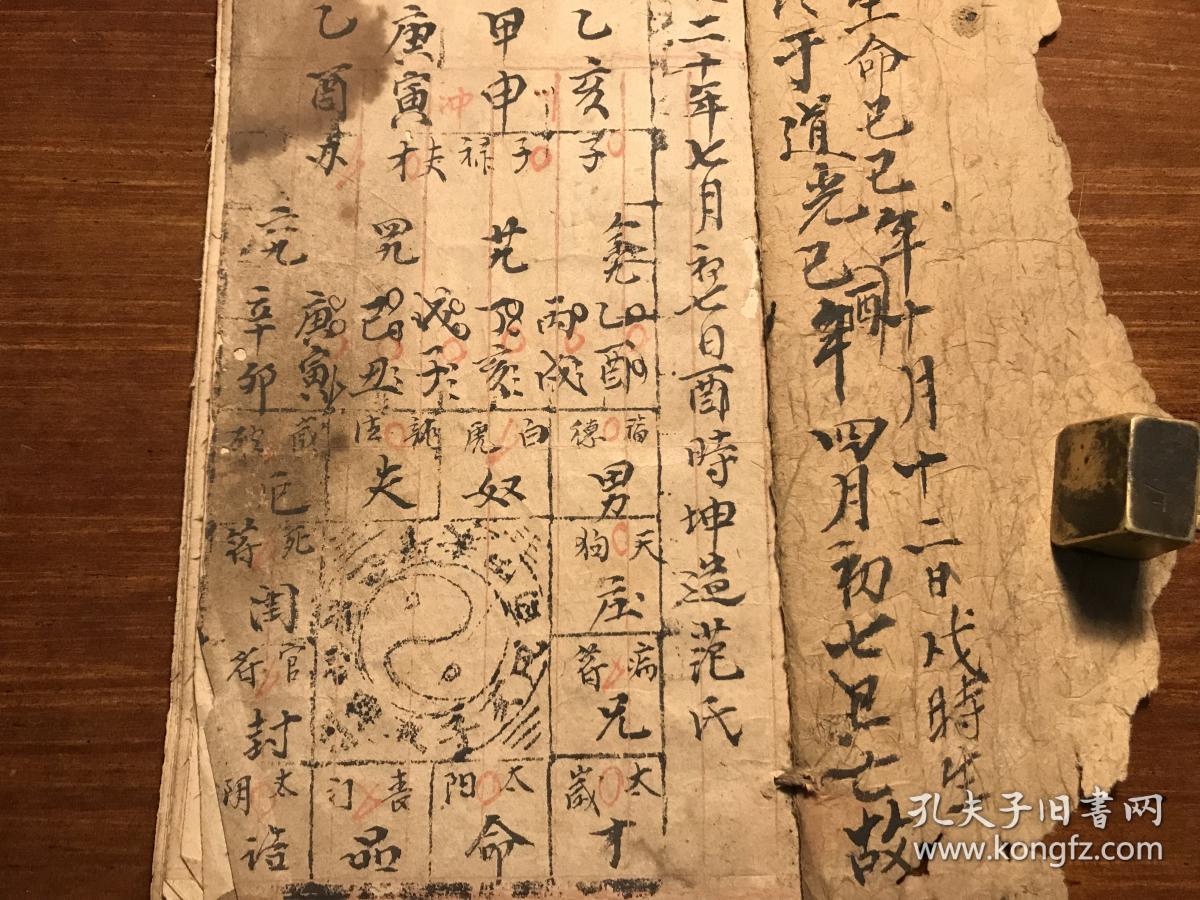 生命己巳年十月十二日戌時生
于道光己酉年四月初七日亡故
二十年七月初七日酉時坤造范氏
乙亥
甲申
庚寅
乙酉
冲
子
子
才
乙酉
丙戌
丁亥
戊子
己丑
庚寅
辛卯
福德
男
白虎
奴
龍德
夫
天狗
庄
病符
兄
太歲
才
太阳
命
喜门
品
太阴
诰
官符
封
死符
闺
孔夫子旧书网
www.kongfz.com